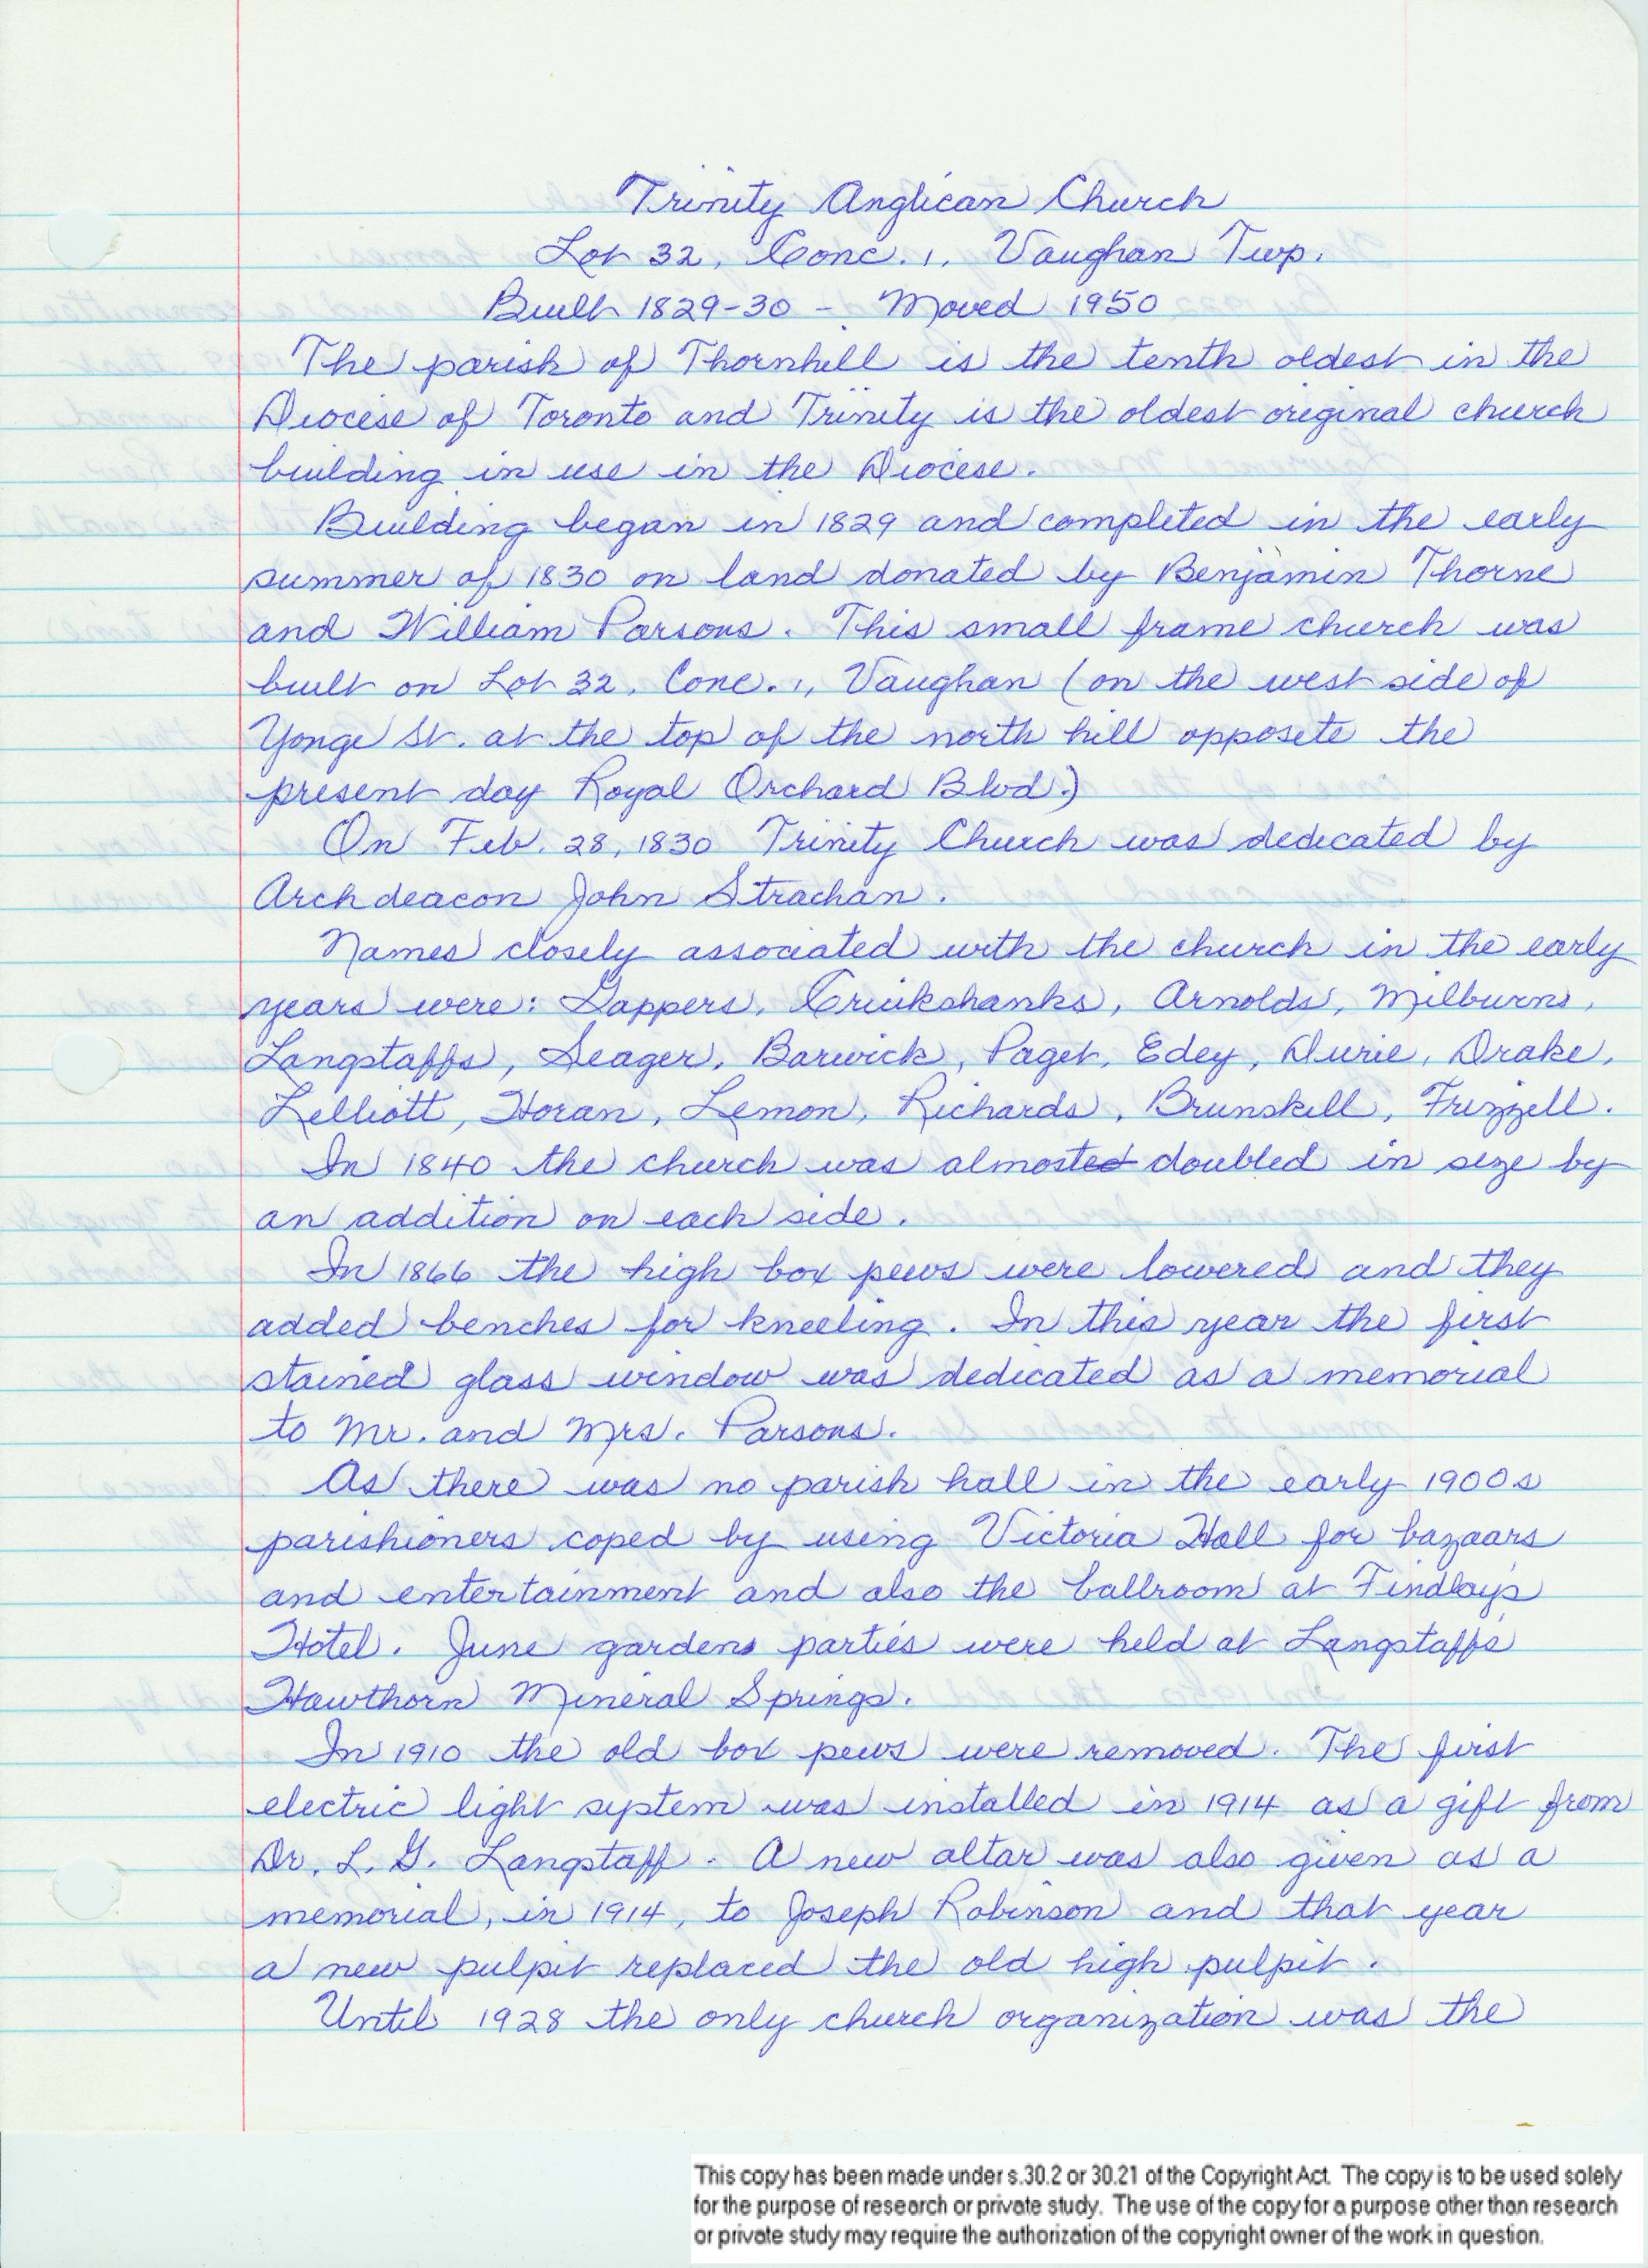 Trinity Anglican Church
Lot 32, Conc. 1, Vaughan Twp.
Built 1829-30 - Moved 1950
The parish of Thornhill is the tenth oldest in the
Diocese of Toronto and Trinity is the oldest original church
building in use in the Diocese.
Building began in 1829 and completed in the early
summer of 1830 on land donated by Benjamin Thorne
and William Parsons. This small frame church was
built on Lot 32, Conc. 1, Vaughan (on the west side of
Yonge St. at the top of the north hill opposete the
present day Royal Orchard Blvd.)
On Feb. 28, 1830 Trinity Church was dedicated by
Archdeacon John Strachan.
Names closely associated with the church in the early
years were: Gappers, Cruikshanks, Arnolds, Milburns,
Langstaffs, Seager, Barwick, Paget, Edey, Durie, Drake,
Lelliott, Horan, Lemon, Richards, Brunskill, Frizzell.
In 1840 the church was almosted doubled in size by
an addition on each side.
In 1866 the high box pews were lowered and they
added benches for kneeling. In this year the first
stained glass window was dedicated as a memorial
to Mr. and Mrs. Parsons.
As there was no parish hall in the early 1900s
parishioners coped by using Victoria Hall for bazaars
and entertainment and also the ballroom at Findlay's
Hotel. June gardens parties were held at Langstaffs
Hawthorn Mineral Springs.
In 1910 the old box pews were removed. The first
electric light system was installed in 1914 as a gift from
Dr. L. G. Langstaff. A new altar was also given as a
memorial, in 1914, to Joseph Robinson and that year
a new pulpit replaced the old high pulpit.
Until 1928 the only church organization was the
This copy has been made under s.30.2 or 30.21 of the Copyright Act. The copy is to be used solely
for the purpose of research or private study. The use of the copy for a purpose other than research
or private study may require the authorization of the copyright owner of the work in question.